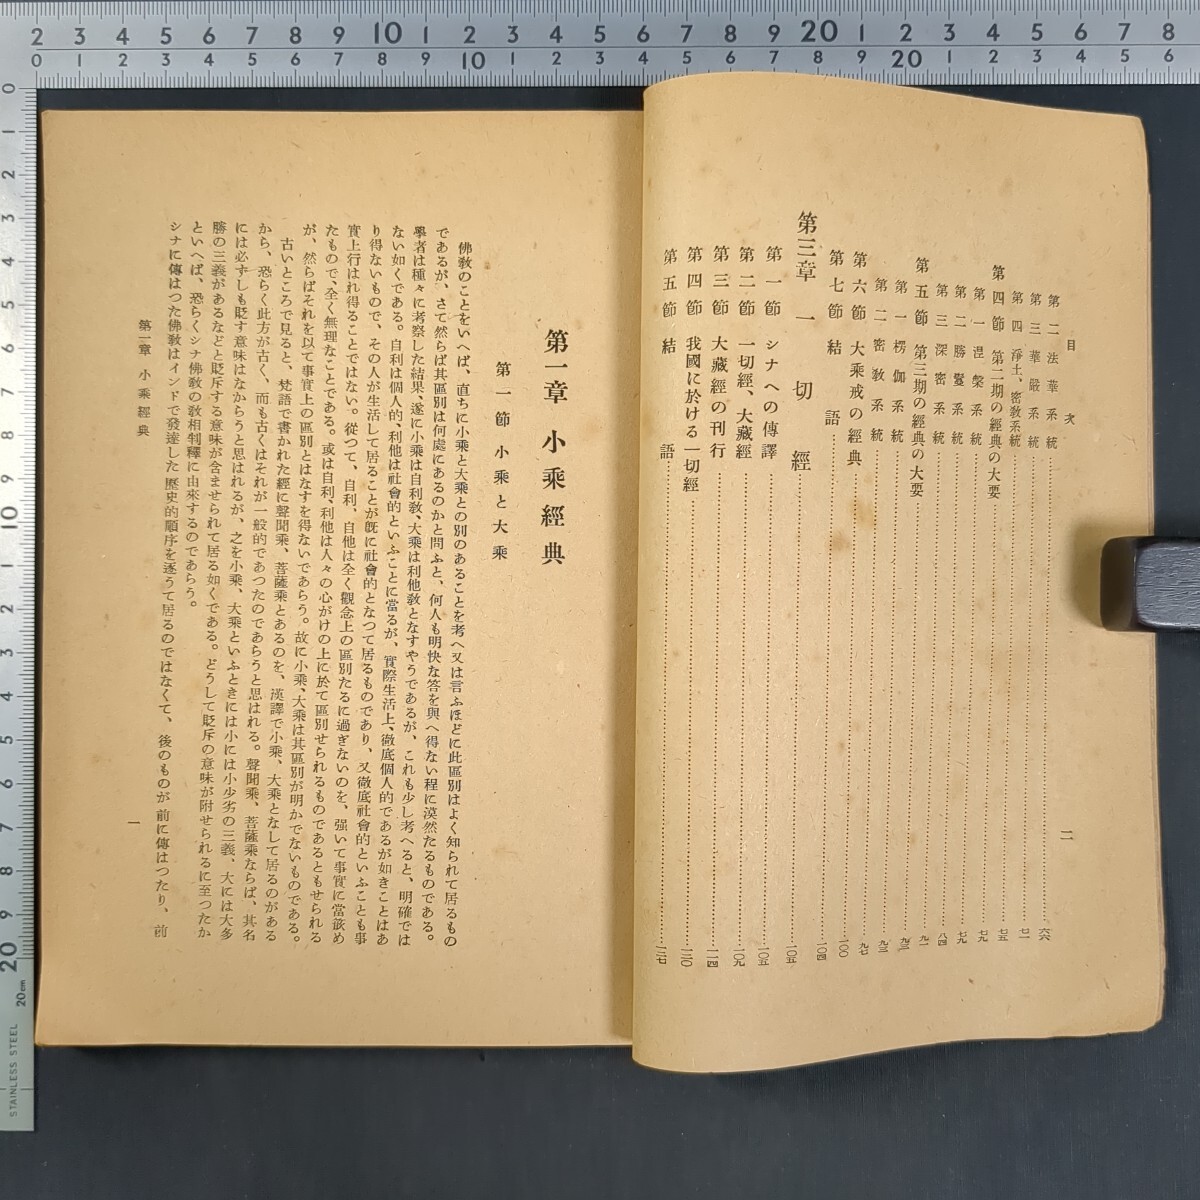 目次
二
第二 法華系統 六六
第三 華嚴系統 七一
第四 淨土、密教系統 七五
第四節 第二期の經典の大要
第一 涅槃系統 七九
第二 勝鬘系統 七九
第三 深密系統 八四
第五節 第三期の經典の大要 九一
第一 楞伽系統 九三
第二 密教系統 九三
第六節 大乘戒の經典 九七
第七節 結語 一〇〇
第三章 一切經 一〇五
第一節 シナへの傳譯 一〇五
第二節 一切經、大藏經 一〇九
第三節 大藏經の刊行 一一四
第四節 我國に於ける一切經 一二〇
第五節 結語 一二七
第一章 小乘經典
第一節 小乘と大乘
佛教のことをいへば、直ちに小乘と大乘との別のあることを考へ又は言ふほどに此區別はよく知られて居るもの
であるが、さて然らば其區別は何處にあるのかと問ふと、何人も明快な答を與へ得ない程に漠然たるものである。
學者は種々に考察した結果、遂に小乘は自利教、大乘は利他教となすやうであるが、これも少し考へると、明確では
ない如くである。自利は個人的、利他は社會的といふことに當るが、實際生活上、徹底個人的であるが如きことはあ
り得ないもので、その人が生活して居ることが既に社會的となつて居るものであり、又徹底社會的といふことも事
實上行はれ得ることではない。從つて、自利、自他は全く觀念上の區別たるに過ぎないのを、强いて事實に當嵌め
たもので、全く無理なことである。或は自利、利他は人々の心がけの上に於て區別せられるものであるともせられる
が、然らばそれを以て事實上の區別とはなすを得ないであらう。故に小乘、大乘は其區別が明かでないものである。
古いところで見ると、梵語で書かれた經に聲聞乘、菩薩乘とあるのを、漢譯で小乘、大乘となして居るのがある
から、恐らく此方が古く、而も古くはそれが一般的であつたのであらうと思はれる。聲聞乘、菩薩乘ならば、其名
には必ずしも貶す意味はなからうと思はれるが、之を小乘、大乘といふときには小には小少劣の三義、大には大多
勝の三義があるなどと貶斥する意味が含ませられて居る如くである。どうして貶斥の意味が附せられるに至つたか
といへば、恐らくシナ佛教の教相判釋に由來するのであらう。
シナに傳はつた佛教はインドで發達した歷史的順序を逐うて居るのではなくて、後のものが前に傳はつたり、前
第一章 小乘經典
一
STAINLESS STEEL
20cm